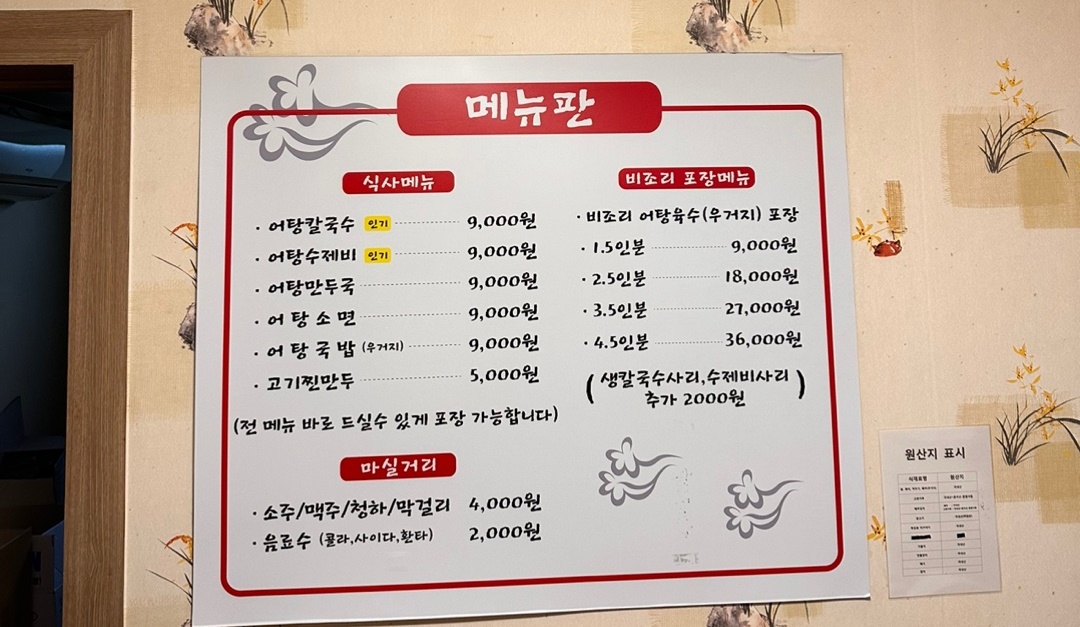 메뉴판
식사메뉴
· 어탕칼국수 인기 9,000원
· 어탕수제비 인기 9,000원
· 어탕만두국 9,000원
· 어 탕 소 면 9,000원
· 어 탕 국 밥 (우거지) 9,000원
· 고기찐만두 5,000원
(전 메뉴 바로 드실수 있게 포장 가능합니다)
마실거리
· 소주/맥주/청하/막걸리 4,000원
· 음료수 (콜라,사이다,환타) 2,000원
비조리 포장메뉴
· 비조리 어탕육수(우거지) 포장
· 1.5인분 9,000원
· 2.5인분 18,000원
· 3.5인분 27,000원
· 4.5인분 36,000원
( 생칼국수사리,수제비사리
추가 2000원 )
원산지 표시
식재료명 원산지